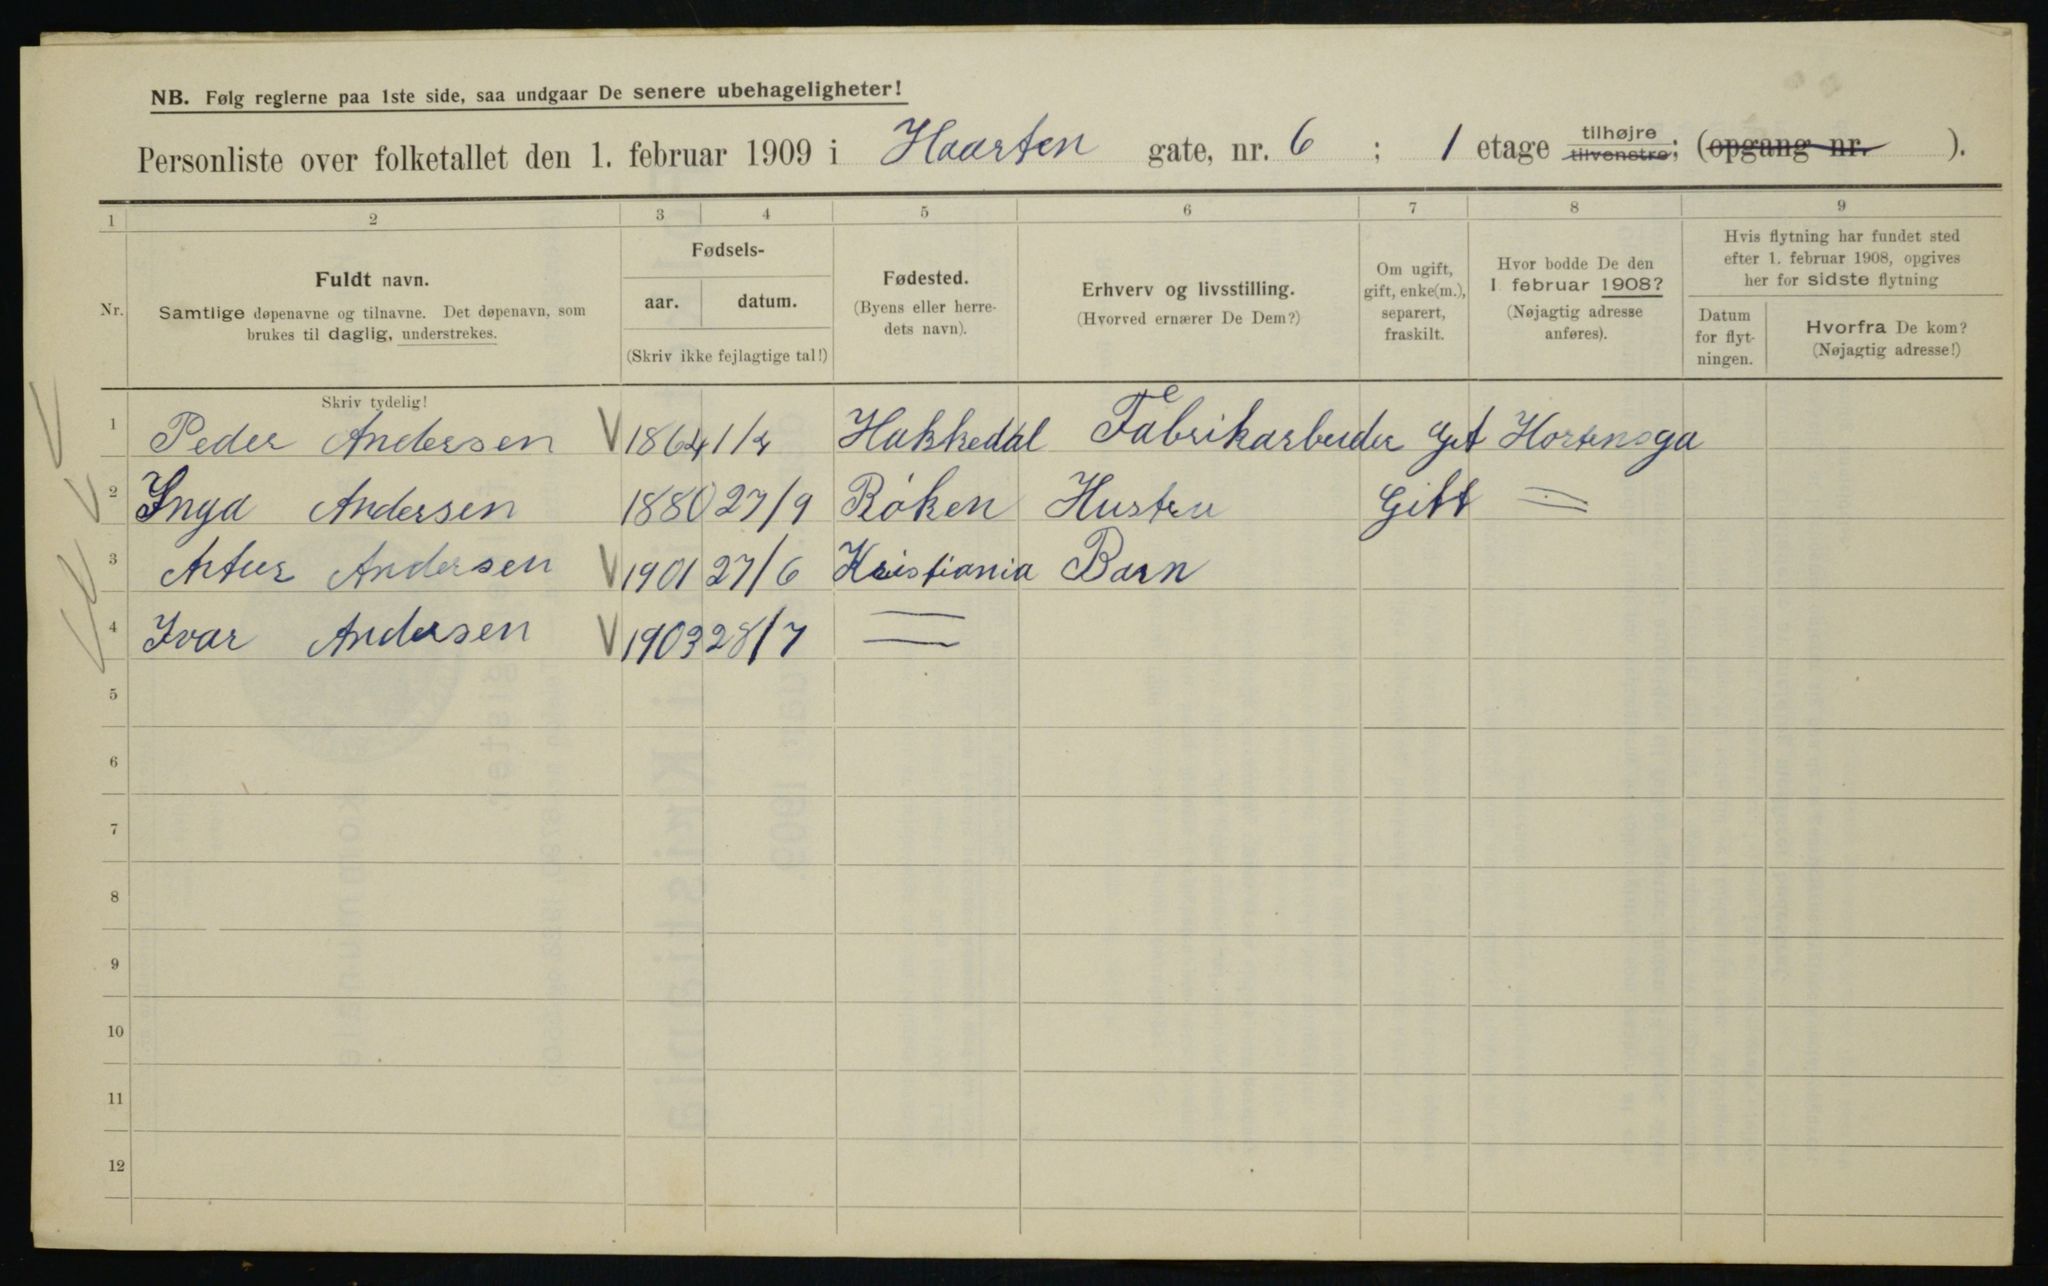 NB. Følg reglerne paa 1ste side, saa undgaar De senere ubehageligheter!
Personliste over folketallet den 1. februar 1909 i Haarten gate, nr. 6 ; 1 etage tilhøjre tilvenstre; (opgang nr. ).
1 2 3 4 5 6 7 8 9
Nr.
Fuldt navn.
Samtlige døpenavne og tilnavne. Det døpenavn, som
brukes til daglig, understrekes.
Fødsels-
aar. datum.
(Skriv ikke fejlagtige tal!)
Fødested.
(Byens eller herre-
dets navn).
Erhverv og livsstilling.
(Hvorved ernærer De Dem?)
Om ugift,
gift, enke(m.),
separert,
fraskilt.
Hvor bodde De den
1. februar 1908?
(Nøjagtig adresse
anføres).
Hvis flytning har fundet sted
efter 1. februar 1908, opgives
her for sidste flytning
Datum
for flyt-
ningen.
Hvorfra De kom?
(Nøjagtig adresse!)
Skriv tydelig!
1 Peder Andersen 1864 1/4 Hakkedal Fabrikarbeider Hortensga
2 Inga Andersen 1880 27/9 Røken Hustru Gift =
3 Artur Andersen 1901 27/6 Kristiania Barn
4 Ivar Andersen 1903 28/7 =
5
6
7
8
9
10
11
12